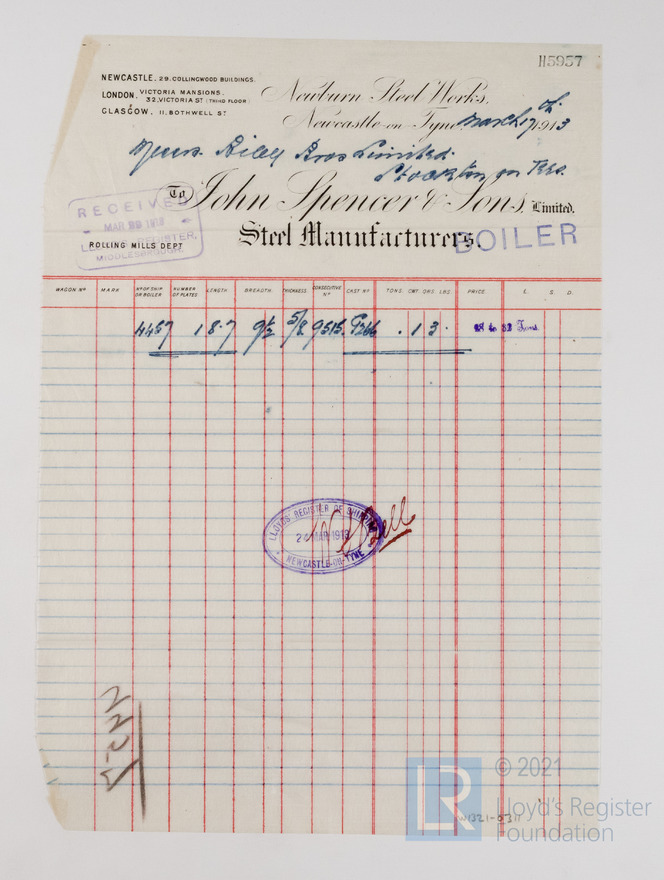 115957
NEWCASTLE. 29. COLLINGWOOD BUILDINGS.
LONDON. VICTORIA MANSIONS.
32. VICTORIA ST (THIRD FLOOR)
&
GLASGOW. 11. BOTHWELL ST
Newburn Steel Works.
Newcastle-on-Tyne, March 17th 1913
Messrs. Riley Bros Limited.
Stockton on Tees.
To John Spencer & Sons, Limited.
RECEIVED
MAR 1913
REGISTER,
MIDDLESBROUGH.
Steel Manufacturers.
BOILER
ROLLING MILLS DEPT
WAGON No MARK No OF SHIP OR BOILER NUMBER OF PLATES LENGTH. BREADTH. THICKNESS. CONSECUTIVE No CAST No TONS. CWT. QRS. LBS. PRICE. £. S. D.
4457 1 8.7 9½ 5/8 9515. P266 . 1 3 . 28 to 32 Tons.
LLOYDS' REGISTER OF SHIPPING
MAR 1913
NEWCASTLE-ON-TYNE
Bell
© 2021
LR
Lloyd's Register
Foundation
W1321-0311